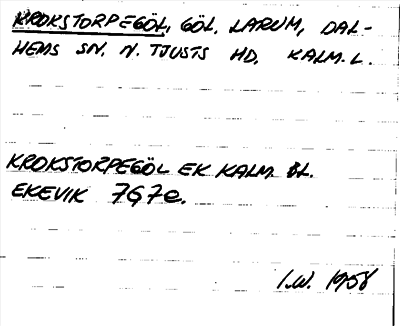 KROKSTORPEGÖL, GÖL, LARUM, DAL-
HEMS SN. N. TJUSTS HD. KALM. L.
KROKSTORPEGÖL EK KALM. BL.
EKEVIK 7G7e.
I.W. 1958